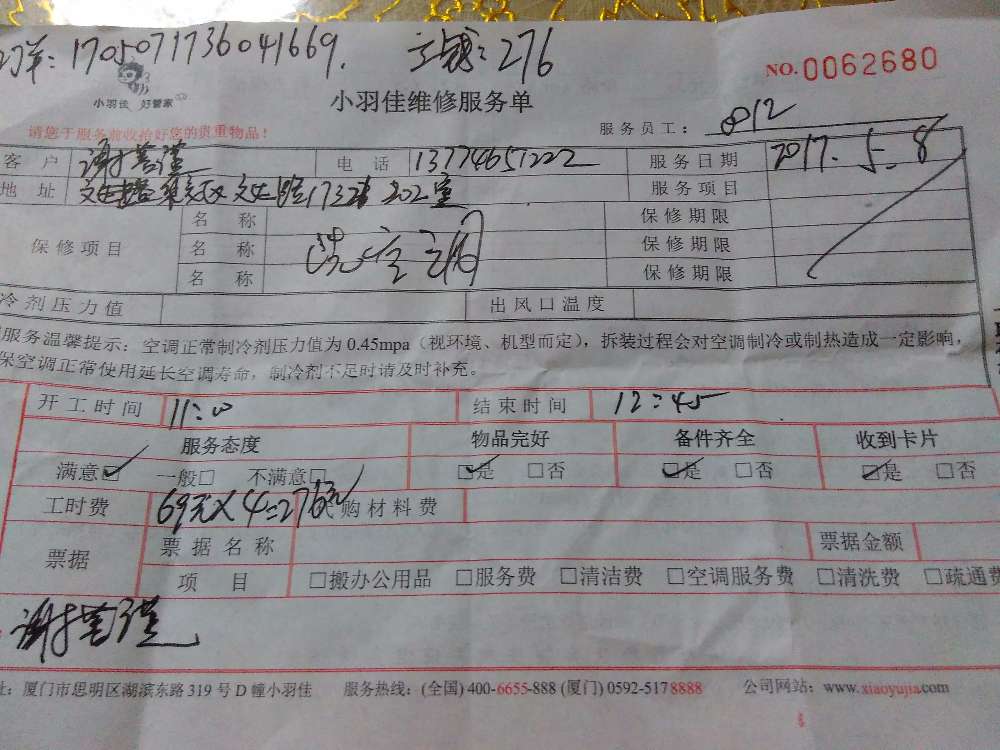 1705071736041669. 276
NO.0062680
小羽佳 好管家
小羽佳维修服务单
请您于服务前收拾好您的贵重物品!
服务员工: 812
客户 谢 瑾 电话 13774651222 服务日期 2017.5.8
地址 1732 202室 服务项目
保修项目 名称 洗空调 保修期限
名称 保修期限
名称 保修期限
冷剂压力值 出风口温度
服务温馨提示: 空调正常制冷剂压力值为 0.45mpa(视环境、机型而定), 拆装过程会对空调制冷或制热造成一定影响,
保空调正常使用延长空调寿命, 制冷剂不足时请及时补充。
开工时间 11:00 结束时间 12:45
服务态度 物品完好 备件齐全 收到卡片
满意☑ 一般□ 不满意□ ☑是 □否 ☑是 □否 ☑是 □否
工时费 69元×4=276元 代购材料费
票据 票据名称 票据金额
项目 □搬办公用品 □服务费 □清洁费 □空调服务费 □清洗费 □疏通费
谢 瑾
址: 厦门市思明区湖滨东路 319 号 D 幢小羽佳 服务热线: (全国) 400-6655-888 (厦门) 0592-5178888 公司网站: www.xiaoyujia.com